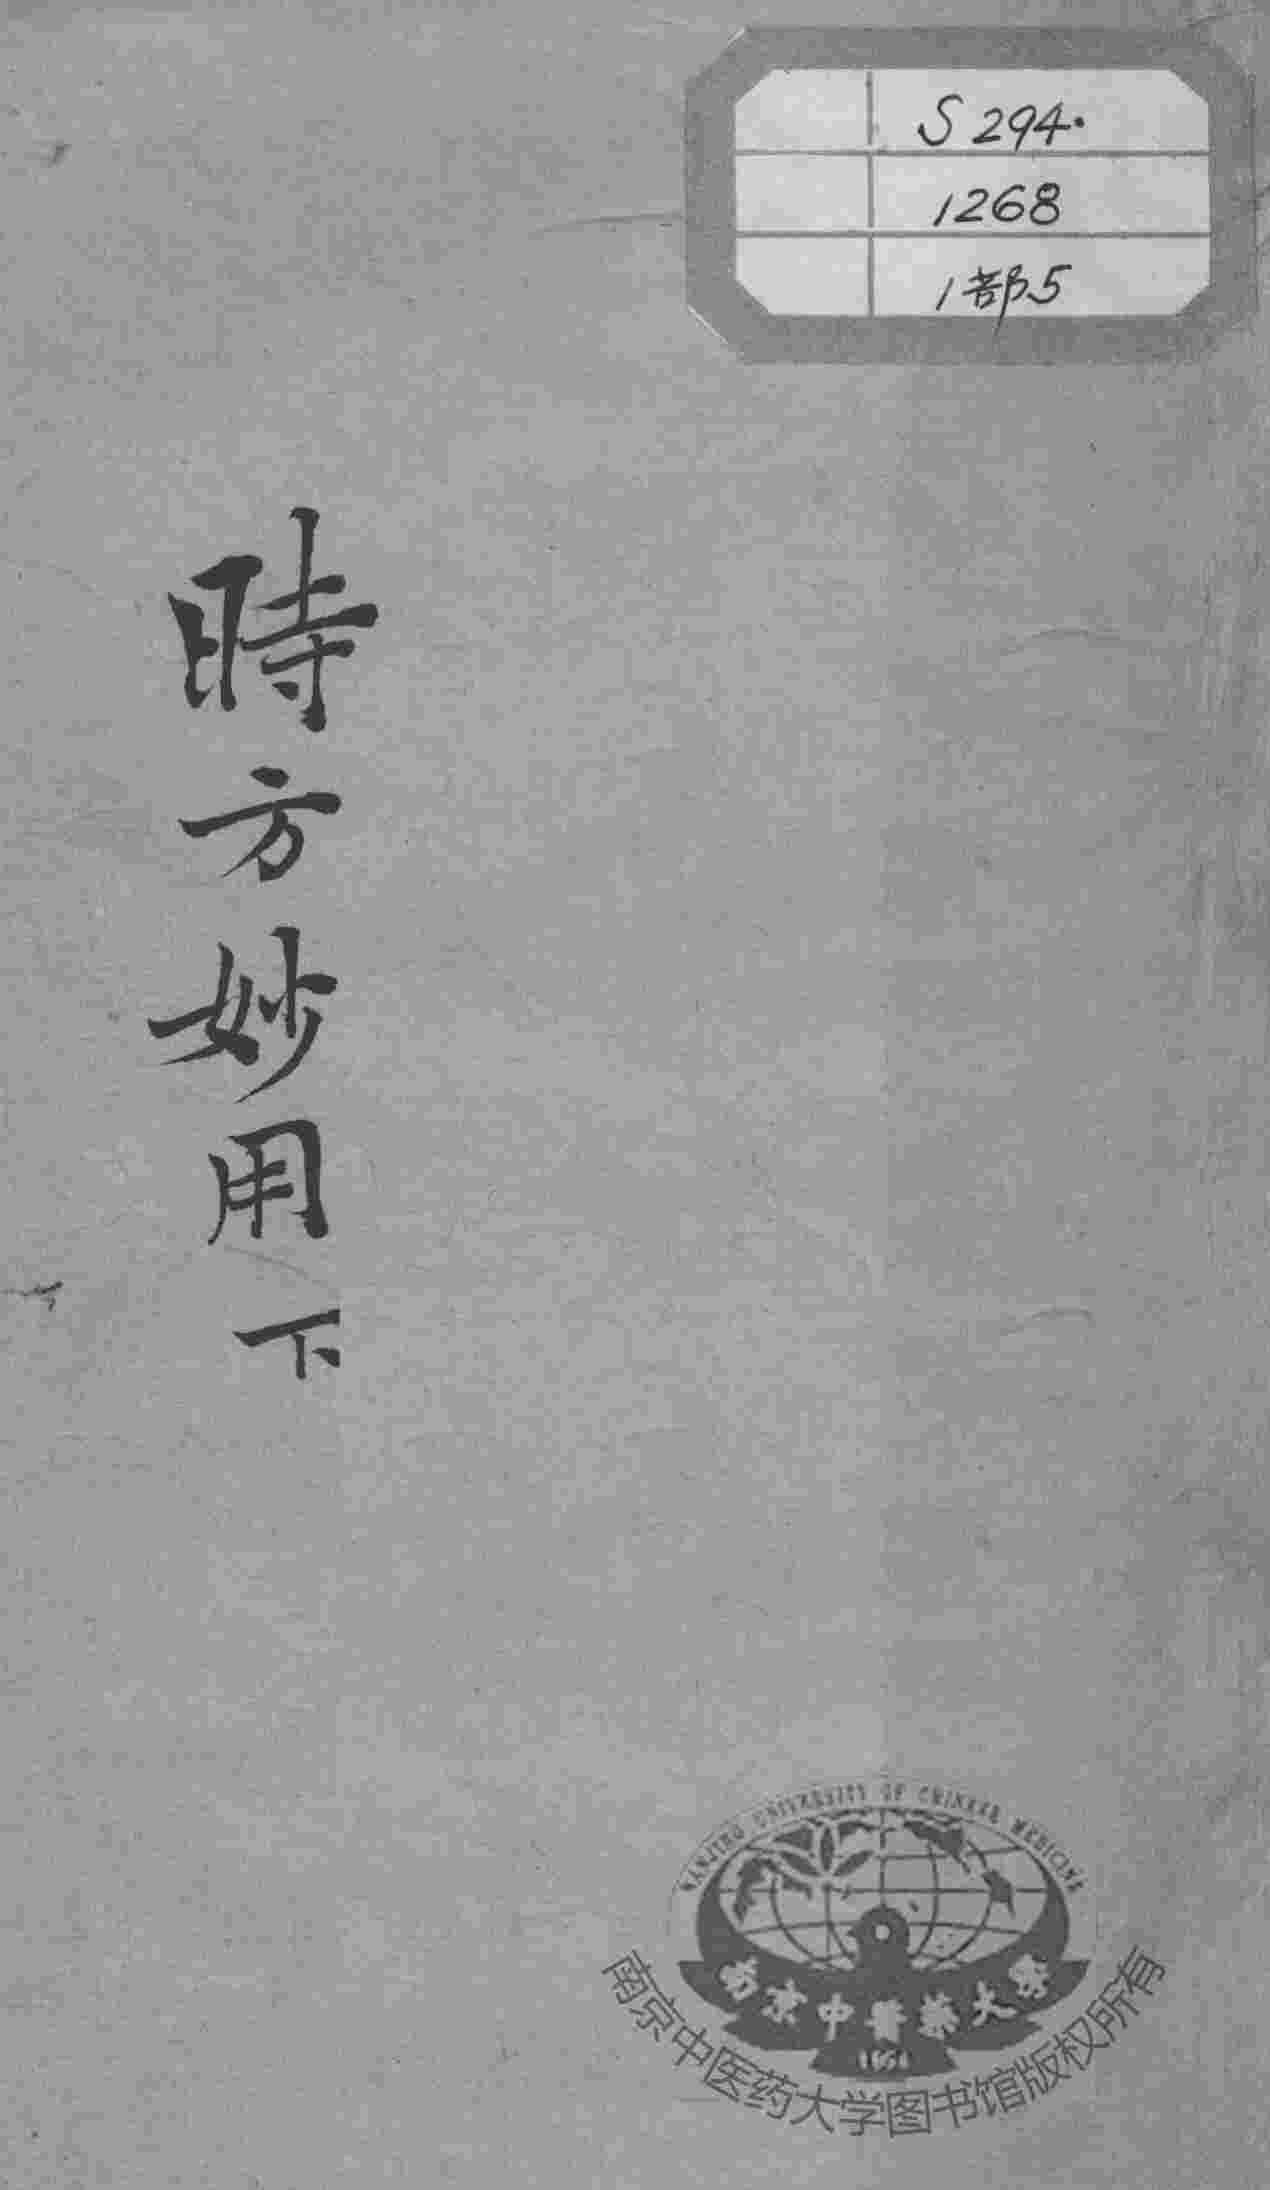 S 294.
1268
1部5
時方妙用下
NANJING UNIVERSITY OF CHINESE MEDICINE
南京中醫藥大學
南京中医药大学图书馆版权所有